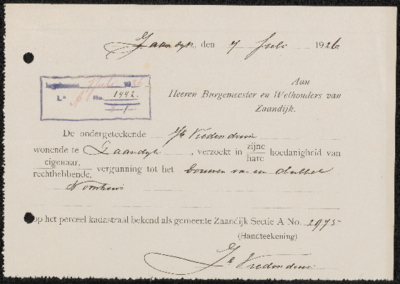 Zaandijk, den 7 Juli 1926
Aan
Heeren Burgemeester en Wethouders van
Zaandijk.
No. 1442
De ondergeteekende Vredenduin
wonende te Zaandijk, verzoekt in zijne hare hoedanigheid van
eigenaar, rechthebbende, vergunning tot het bouwen van een dubbel
Woonhuis
op het perceel kadastraal bekend als gemeente Zaandijk Sectie A No. 2975
(Handteekening)
Vredenduin